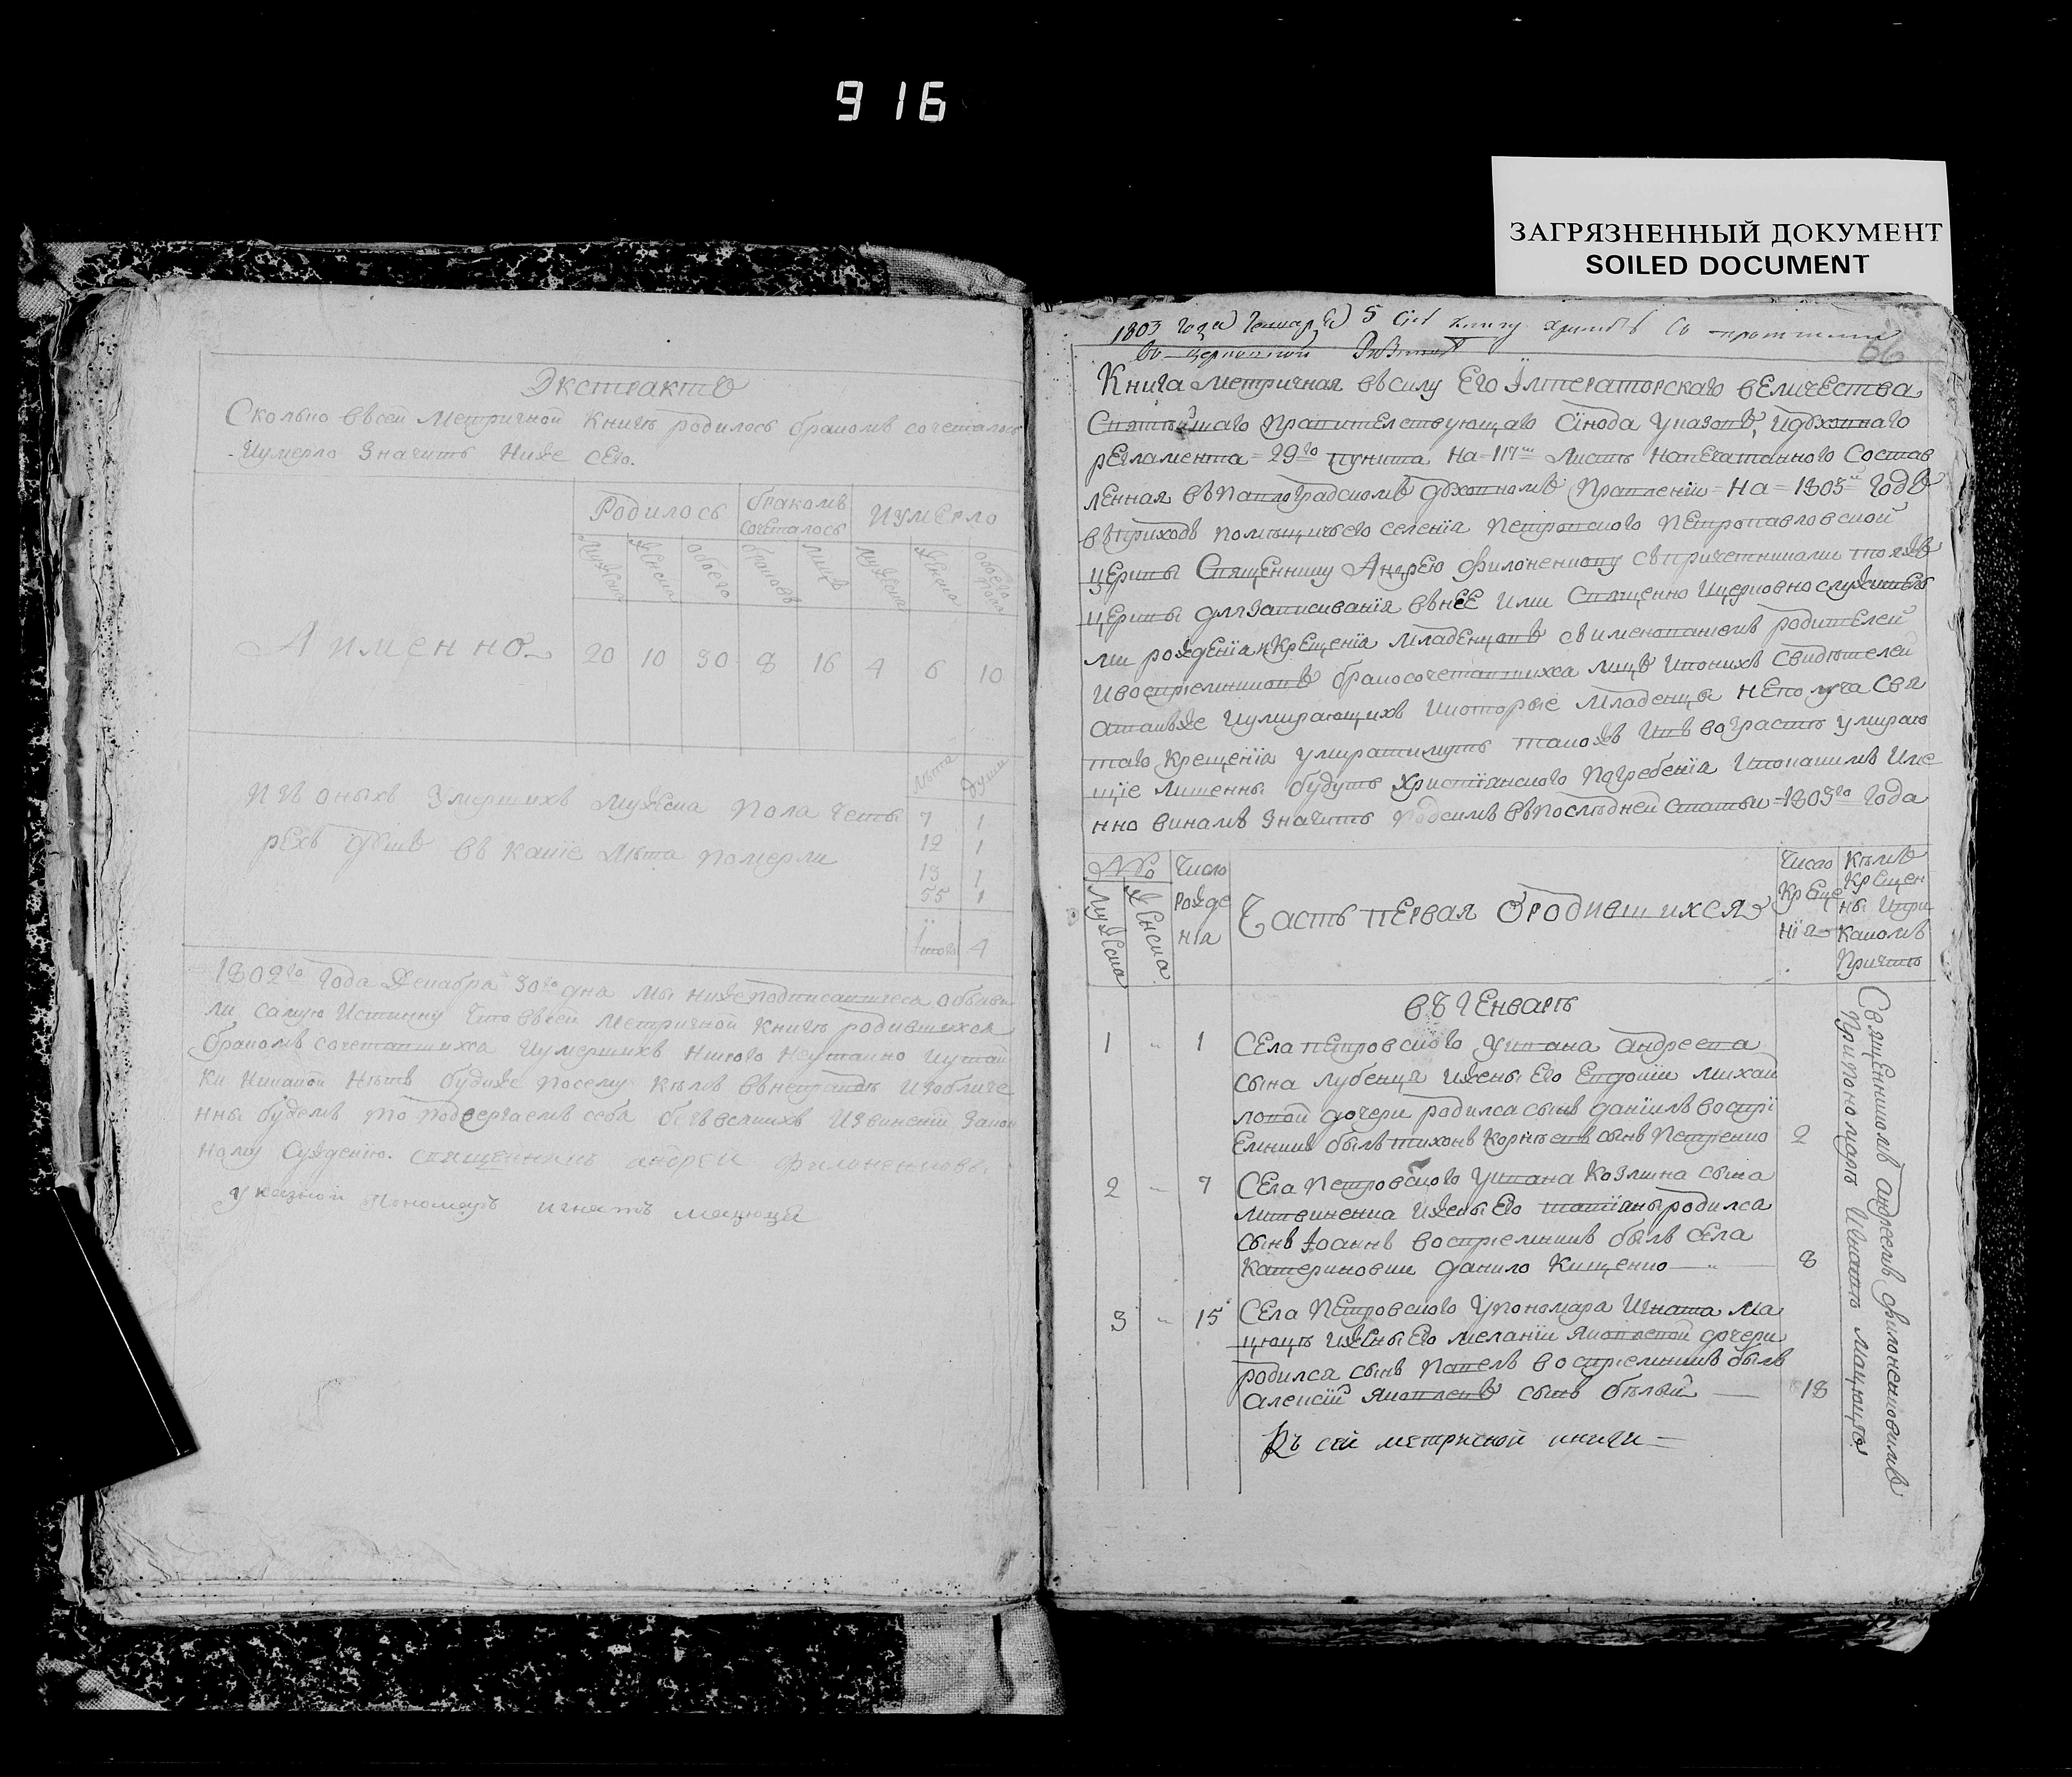 916
ЗАГРЯЗНЕННЫЙ ДОКУМЕНТ
SOILED DOCUMENT
Экстрактъ
Сколько въсей Метричной Книгѣ родилось бракомъ сочеталось
Иумерло Значитъ Ниже сего.
Родилось
бракомъ сочеталось
Иумерло
Мужеска
Женска
обоего
браковъ
лицъ
Мужеска
Женска
обоего пола
Аименно
20 10 30 8 16 4 6 10
Изъ оныхъ Умершихъ Мужеска Пола четы
рехъ душъ въ какие Лѣта померли
Лѣта
Души
7 1
12 1
13 1
55 1
Итого 4
1802го Года Декабря 30го дня Мы нижеподписавшиеся объяви
ли самую Истинну Что въсей Метричной Книгѣ родившихся
бракомъ сочетавшихся Иумершихъ Никого Неутаино Иутай
ки Никакой Нѣтъ будиже поселу кѣлъ въ неправдѣ Изобличе
нны будемъ то подвергаемъ себя безъ всякихъ Извинений Закон
ному Суждению. священникъ андрей Филоненковъ.
указной Пономарь игнатъ мацюця
1803 года Генваря 5 Сію книгу
66
Книга Метричная въсилу Его Императорскаго вЕличЕства
Святѣйшаго Правителствующаго Сѵнода Указовъ, Идуховнаго
рЕгламента 29го пункта На 117м Листѣ НапЕчатанного Состав
лЕнная въПавлоградскомъ духовномъ Правленіи На 1803й Годъ
въприходъ помѣщичьего селенія Петровского Петропавловской
церкви Священнику Андрею Филоненкову съпричетниками тояжъ
церкви дляЗаписиванія въ неЕ Ими Священно Ицерковнослужителя
ми рождЕнія иКрЕщЕнія МладЕнцовъ съименованіемъ родитЕлей
Ивоспріемниковъ бракосочетавшихся лицъ Ипонихъ Свидѣтелей
Атакъже Иумирающихъ Икоторые Младенцы неполуча Свя
таго Крещенія умиратимутъ такожъ Ивъ возрастѣ умираю
щіе лишенны будутъ Христіанского Погребенія Ипокакимъ Име
нно винамъ Значитъ Подсимъ въПослѣдней Статьи 1803го Года
№
Мужеска
Женска
Число рожденія
Часть пЕрвая ОродившИхся
Число Крещенія
Кѣмъ Крещены Ипри Какомъ Причтѣ
въ гЕнварѣ
1 1 СЕла пЕтровского Уивана Андреева
сына Лубенця Ижены Его Евдокіи Михай
ловой дочери родился сынъ даніилъ воспрі
Емникъ былъ тихонъ Корнѣевъ сынъ Петренко 2
2 7 СЕла Петровского Уивана Козмина сына
Литвиненка Ижены Его татіаны родился
сынъ Іоаннъ воспріемникъ былъ села
Катериновки данило Кищенко 8
3 15 СЕла ПЕтровского Упономаря Игната Ма
цюцѣ ИжЕны Его меланіи Яковлевой дочери
родился сынъ Павелъ воспріемникъ былъ
Алексій Яковлевъ сынъ бѣлый 18
Къ сей метрической книги
Священникомъ Андреемъ Филоненковимъ
Припономарѣ Игнатѣ Мацюцѣ